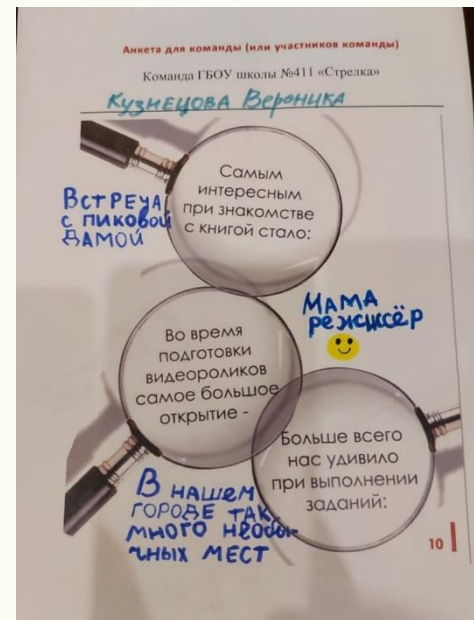 Анкета для команды (или участников команды)
Команда ГБОУ школы №411 «Стрелка»
Кузнецова Вероника
Самым
интересным
при знакомстве
с книгой стало:
ВСТРЕЧА
С ПИКОВОЙ
ДАМОЙ
Во время
подготовки
видеороликов
самое большое
открытие -
МАМА
режиссёр
Больше всего
нас удивило
при выполнении
заданий:
В НАШЕМ
ГОРОДЕ ТАК
МНОГО НЕОБЫ-
ЧНЫХ МЕСТ
10